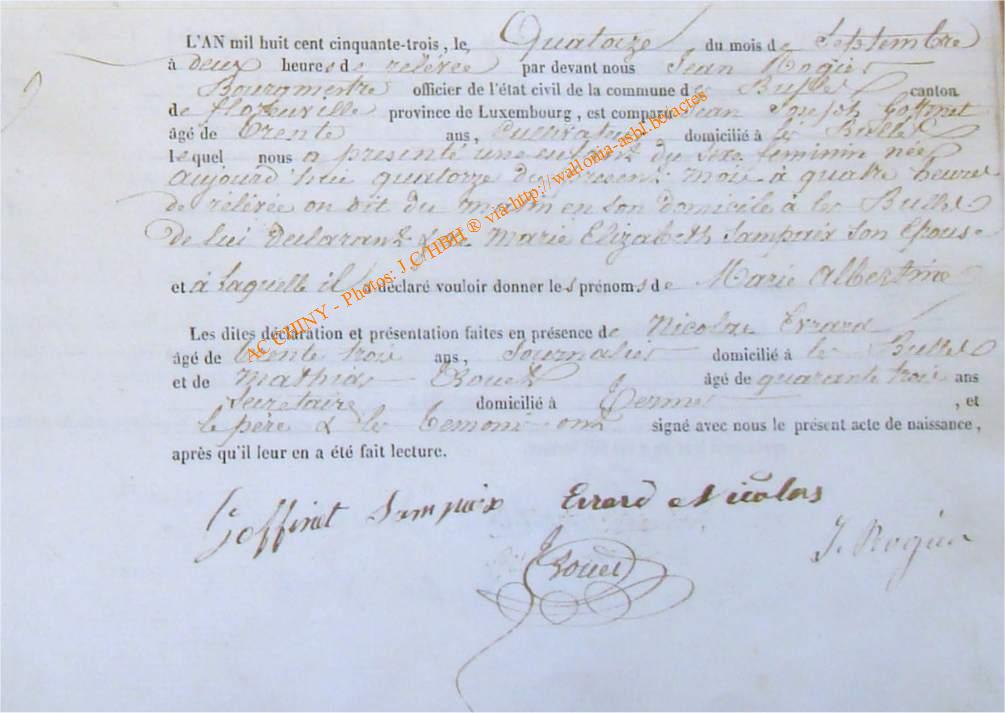 L'AN mil huit cent cinquante-trois, le Quatorze du mois de Septembre
à deux heures de relévée par devant nous Jean Rogier
Bourgmestre officier de l'état civil de la commune de Bulles canton
de florenville province de Luxembourg, est comparu Jean Joseph Goffinet
âgé de trente ans, Cultivateur domicilié à les Bulles
lequel nous a présenté une enfant du sexe feminin née
aujourd'hui quatorze du present mois à quatre heures
de relévée on dit du matin en son domicile à les Bulles
de lui declarant & de Marie Elizabeth Sampaix son Epouse
et à laquelle il a déclaré vouloir donner les prénoms de Marie Albertine
Les dites déclaration et présentation faites en présence de Nicolas Errard
âgé de trente trois ans, Journalier domicilié à les Bulles
et de Mathias Rouet âgé de quarante trois ans
Secretaire domicilié à Termes, et
le père & les temoins ont signé avec nous le présent acte de naissance,
après qu'il leur en a été fait lecture.
Goffinet Sampaix Errard Nicolas
J. Rogier
Rouet
AC CHINY - Photos: J.C/HBH ® via http://wallonia-asbl.be/actes